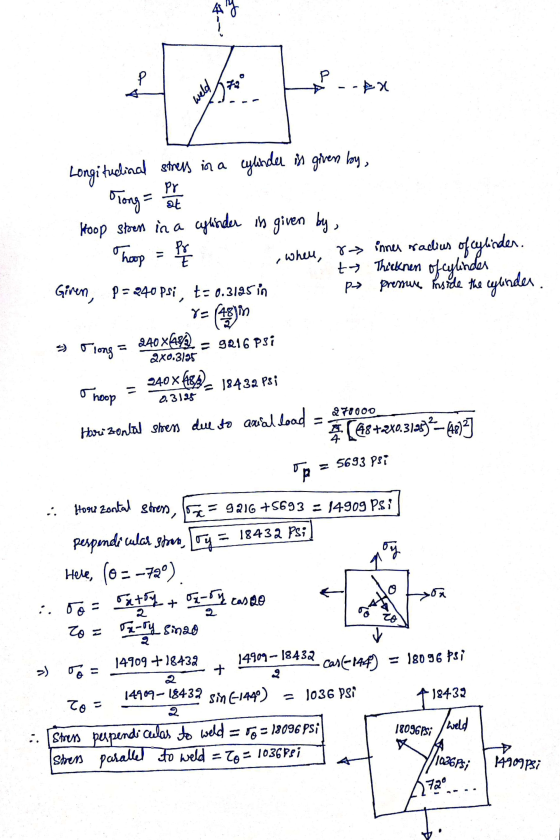 y
P
weld
72°
P
x
Longitudinal stress in a cylinder is given by,
σlong = Pr/2t
Hoop stress in a cylinder is given by,
σhoop = Pr/t , where, r → inner radius of cylinder.
t → Thickness of cylinder
P → pressure inside the cylinder.
Given, P = 240 PSi, t = 0.3125 in
r = (48/2) in
⇒ σlong = 240×(48/2)/2×0.3125 = 9216 PSi
σhoop = 240×(48/2)/0.3125 = 18432 PSi
Horizontal stress due to axial load = 270000/(π/4 [(48+2×0.3125)² − (48)²])
σp = 5693 PSi
∴ Horizontal stress, σx = 9216 + 5693 = 14909 PSi
perpendicular stress, σy = 18432 PSi
Here, (θ = −72°).
∴ σθ = (σx+σy)/2 + (σx−σy)/2 cos2θ
τθ = (σx−σy)/2 sin2θ
σy
θ
σx
σθ
τθ
⇒ σθ = (14909 + 18432)/2 + (14909 − 18432)/2 cos(−144°) = 18096 PSi
τθ = (14909 − 18432)/2 sin(−144°) = 1036 PSi
∴ Stress perpendicular to weld = σθ = 18096 PSi
Stress parallel to weld = τθ = 1036 PSi
18432
18096 PSi
weld
1036 PSi
14909 PSi
72°